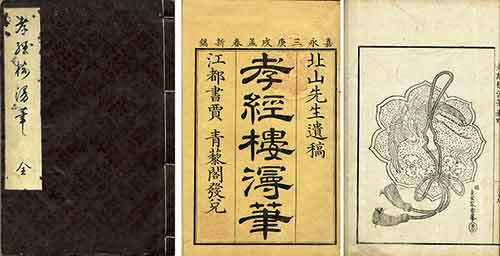 孝經樓漫筆 全
嘉永三庚戌孟春新鐫
北山先生遺稿
孝經樓漫筆
江都書賈 青藜閣發兌